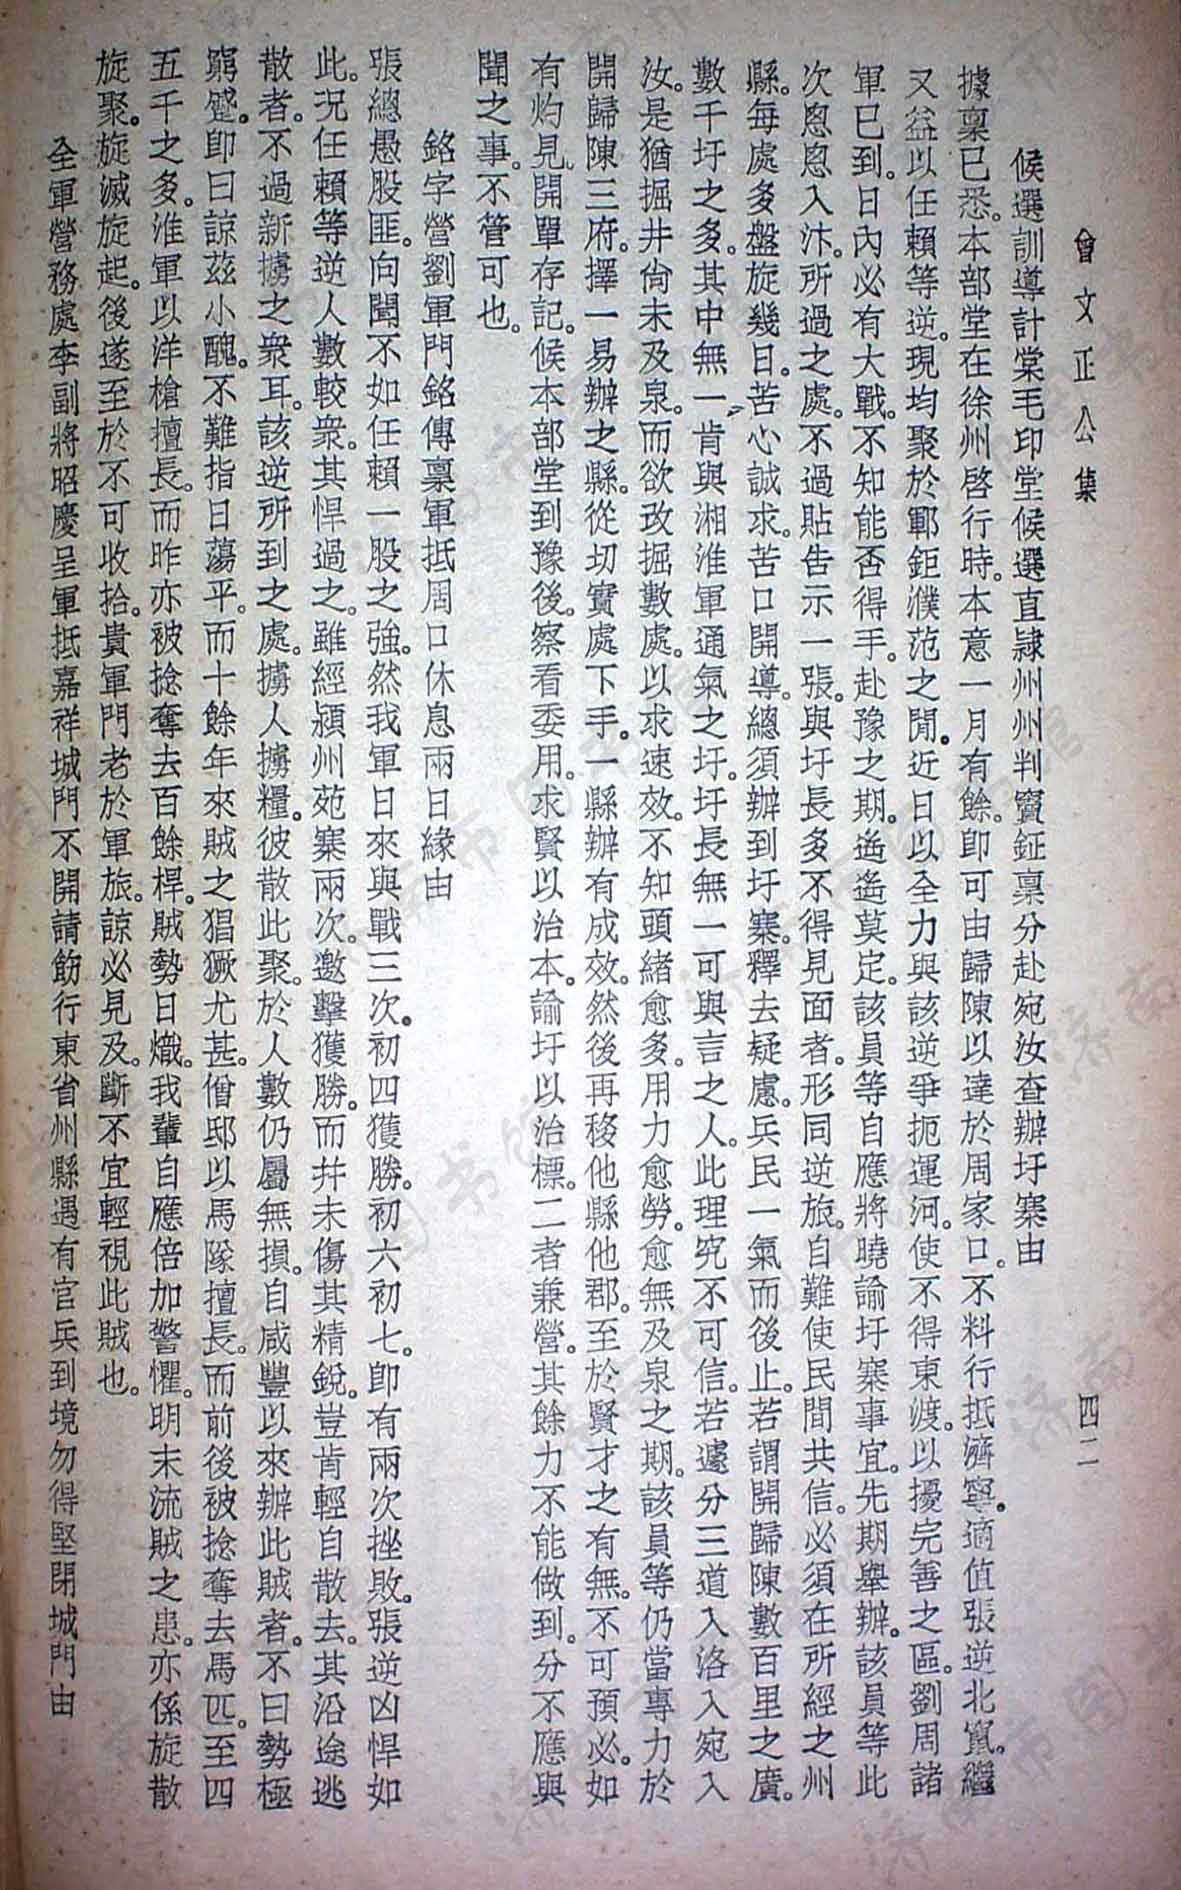 曾文正公集
四二
候選訓導計棠毛印堂候選直隸州州判竇鉦稟分赴宛汝查辦圩寨由
據稟已悉。本部堂在徐州啓行時。本意一月有餘。即可由歸陳以達於周家口。不料行抵濟寧。適值張逆北竄。繼
又益以任賴等逆。現均聚於鄆鉅濮范之間。近日以全力與該逆爭扼運河。使不得東渡。以擾完善之區。劉周諸
軍已到。日內必有大戰。不知能否得手。赴豫之期。遙遙莫定。該員等自應將曉諭圩寨事宜。先期舉辦。該員等此
次恩恩入汴。所過之處。不過貼告示一張。與圩長多不得見面者。形同逆旅。自難使民間共信。必須在所經之州
縣。每處多盤旋幾日。苦心誠求。苦口開導。總須辦到圩寨。釋去疑慮。兵民一氣而後止。若謂開歸陳數百里之廣。
數千圩之多。其中無一肯與湘淮軍通氣之圩。圩長無一可與言之人。此理究不可信。若遽分三道入洛入宛入
汝。是猶掘井尚未及泉。而欲改掘數處。以求速效。不知頭緒愈多。用力愈勞。愈無及泉之期。該員等仍當專力於
開歸陳三府。擇一易辦之縣。從切實處下手。一縣辦有成效。然後再移他縣他郡。至於賢才之有無。不可預必。如
有灼見。開單存記。候本部堂到豫後。察看委用。求賢以治本。諭圩以治標。二者兼營。其餘力不能做到。分不應與
聞之事。不管可也。
銘字營劉軍門銘傳稟軍抵周口休息兩日緣由
張總愚股匪。向聞不如任賴一股之強。然我軍日來與戰三次。初四獲勝。初六初七。即有兩次挫敗。張逆凶悍如
此。況任賴等逆人數較衆。其悍過之。雖經潁州苑寨兩次。邀擊獲勝。而幷未傷其精銳。豈肯輕自散去。其沿途逃
散者。不過新擄之衆耳。該逆所到之處。擄人擄糧。彼散此聚。於人數仍屬無損。自咸豐以來辦此賊者。不曰勢極
窮蹙。即曰諒茲小醜。不難指日蕩平。而十餘年來賊之猖獗尤甚。僧邸以馬隊擅長。而前後被捻奪去馬匹。至四
五千之多。淮軍以洋槍擅長。而昨亦被捻奪去百餘桿。賊勢日熾。我輩自應倍加警懼。明末流賊之患。亦係旋散
旋聚。旋滅旋起。後遂至於不可收拾。貴軍門老於軍旅。諒必見及。斷不宜輕視此賊也。
全軍營務處李副將昭慶呈軍抵嘉祥城門不開請飭行東省州縣遇有官兵到境勿得堅閉城門由